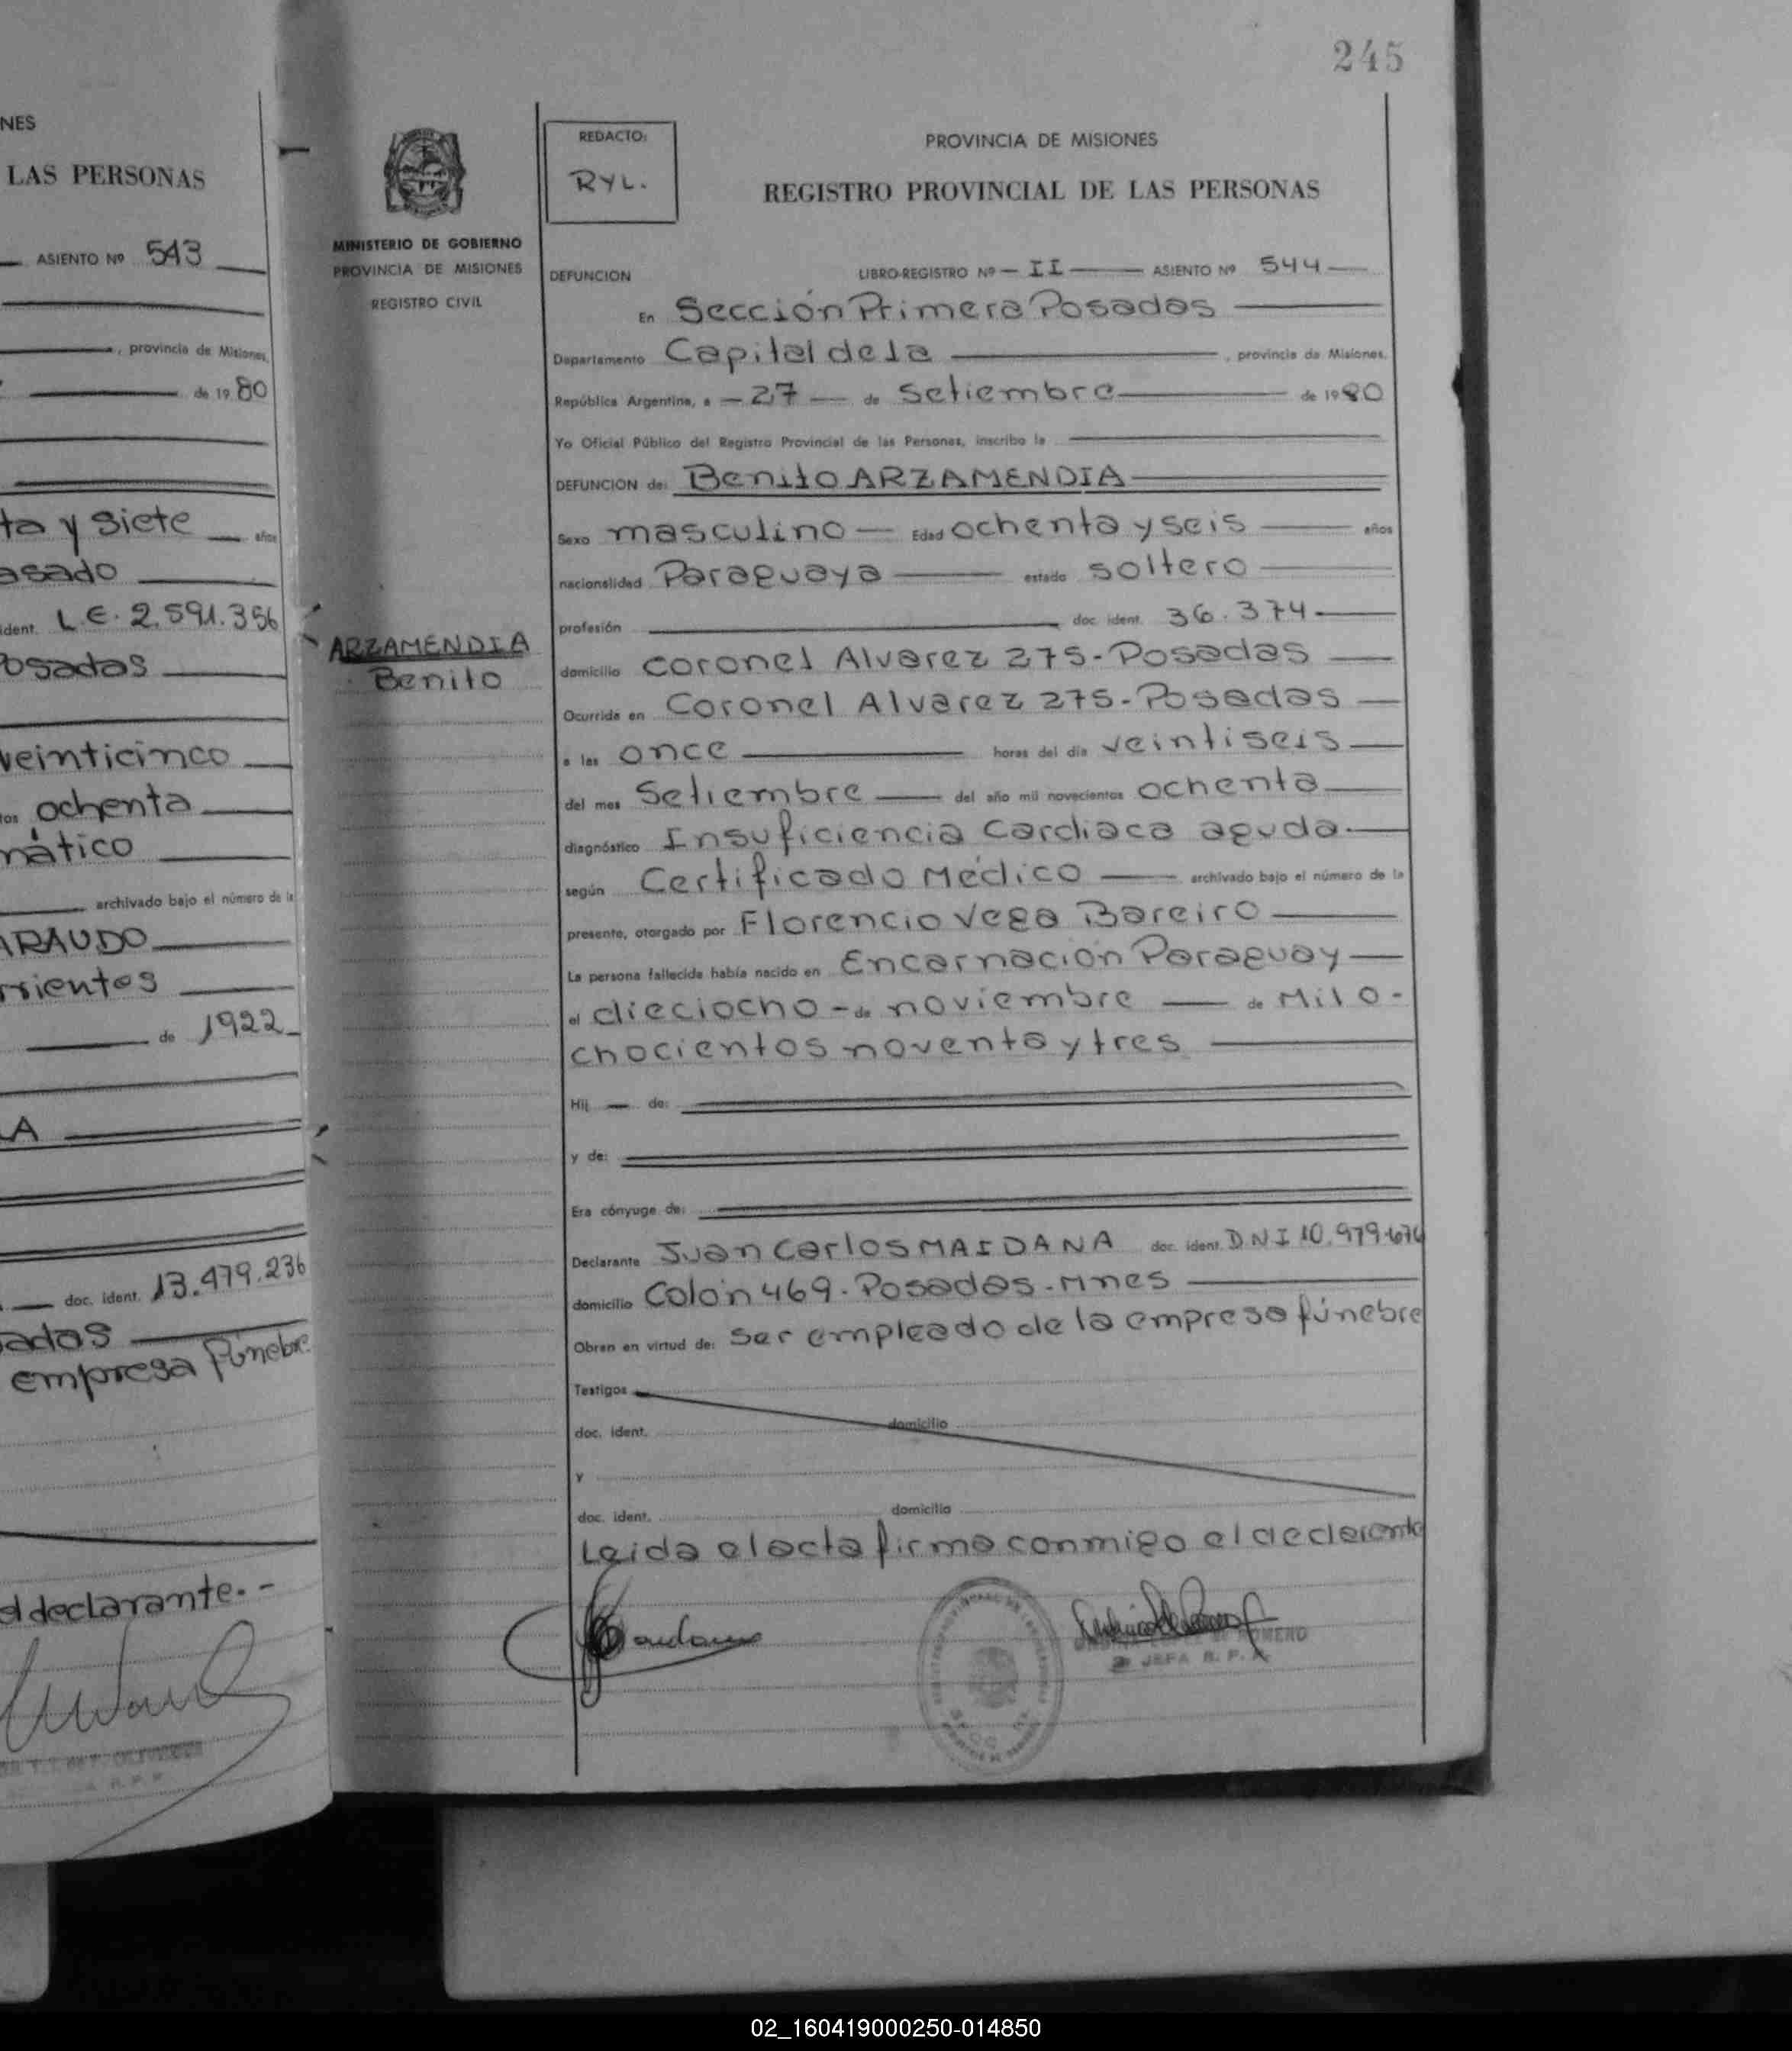 NES
LAS PERSONAS
ASIENTO Nº 543
, provincia de Misiones,
de 19 80
ta y siete años
asado
ident. L.E. 2.591.356
Posadas
veinticinco
tos ochenta
mático
archivado bajo el número de la
ARAUDO
rrientes
de 1922
LA
doc. ident. 13.479.236
sadas
empresa fúnebre
el declarante.-
245
MINISTERIO DE GOBIERNO
PROVINCIA DE MISIONES
REGISTRO CIVIL
ARZAMENDIA
Benito
REDACTO:
RYL.
PROVINCIA DE MISIONES
REGISTRO PROVINCIAL DE LAS PERSONAS
DEFUNCION LIBRO-REGISTRO Nº - II - ASIENTO Nº 544
En Sección Primera Posadas
Departamento Capital de la , provincia de Misiones.
República Argentina, a - 27 - de Setiembre de 1980
Yo Oficial Público del Registro Provincial de las Personas, inscribo la
DEFUNCION de: Benito ARZAMENDIA
Sexo masculino - Edad ochenta y seis años
nacionalidad Paraguaya estado soltero
profesión doc. ident. 36.374
domicilio coronel Alvarez 275-Posadas
Ocurrida en Coronel Alvarez 275-Posadas
a las once horas del día veintiseis
del mes Setiembre del año mil novecientos ochenta
diagnóstico Insuficiencia Cardiaca aguda.
según Certificado Médico archivado bajo el número de la
presente, otorgado por Florencio Vega Bareiro
La persona fallecida había nacido en Encarnación Paraguay
el dieciocho - de noviembre de Mil o-
chocientos noventa y tres
Hij de:
y de:
Era cónyuge de:
Declarante Juan Carlos MAIDANA doc. ident. DNI 10.979.674
domicilio Colón 469. Posadas. Mnes
Obran en virtud de: Ser empleado de la empresa fúnebre
Testigos
doc. ident. domicilio
y
doc. ident. domicilio
Leida el acta firma conmigo el declarante
ROMERO
JEFA R. P.
02_160419000250-014850